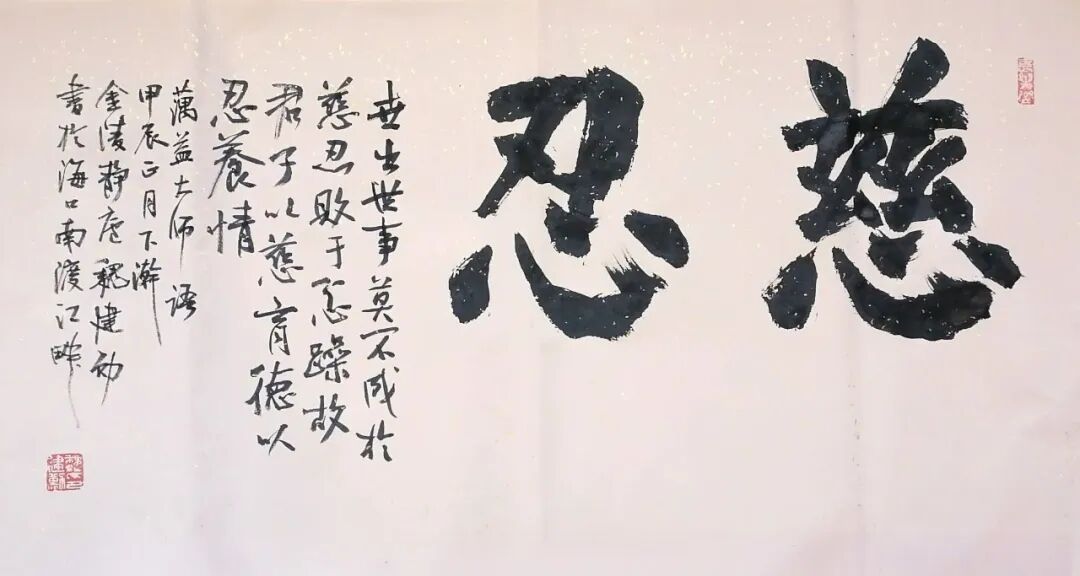 慈忍
世出世事莫不成於
慈忍敗于忿躁故
君子以慈育德以
忍養情
蕅益大師語
甲辰正月下瀚
金陵静庐魏建勋
書於海口南渡江畔